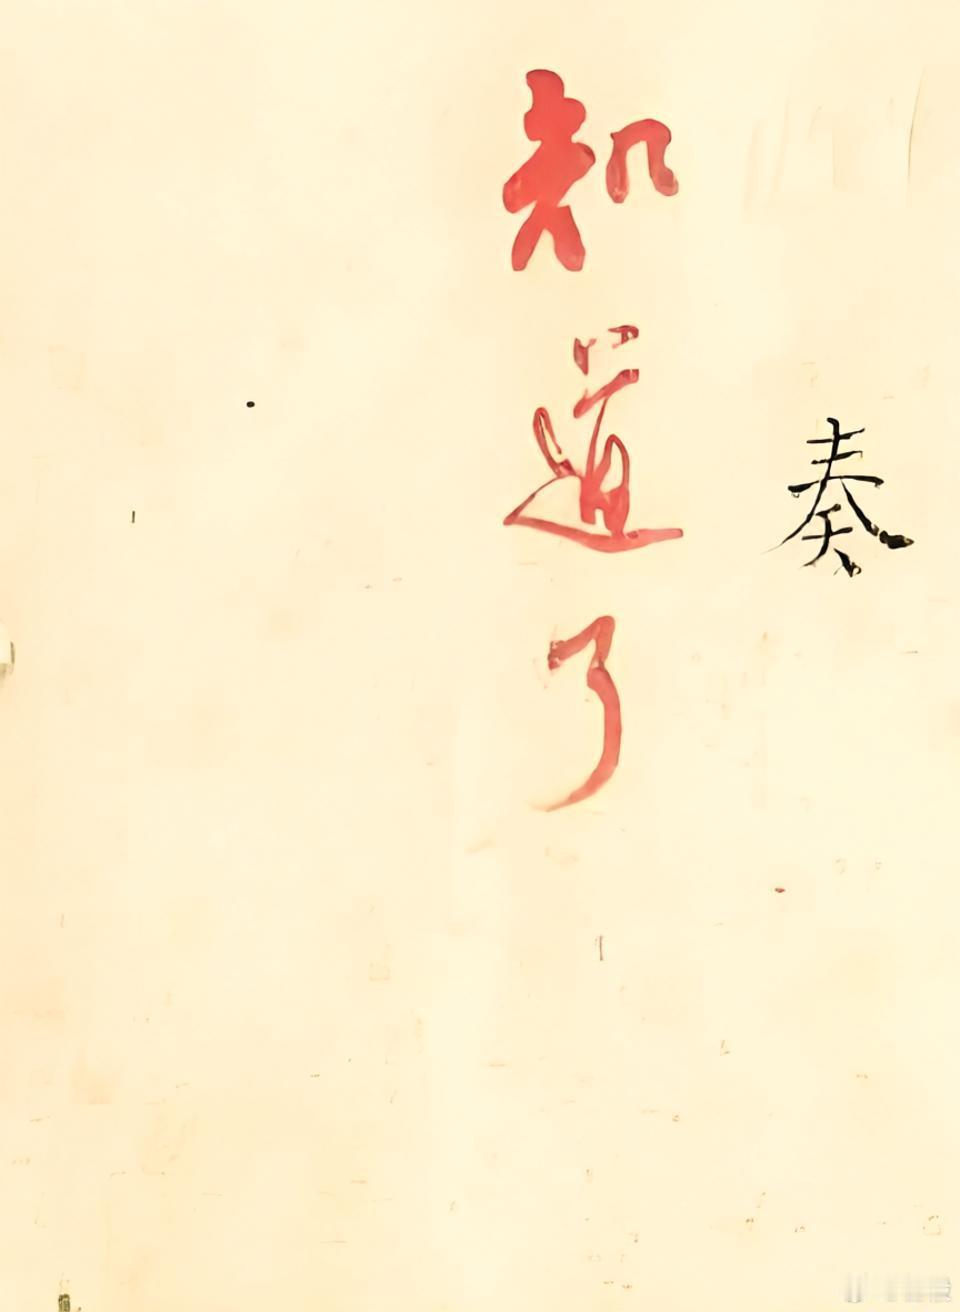 奏
知道了